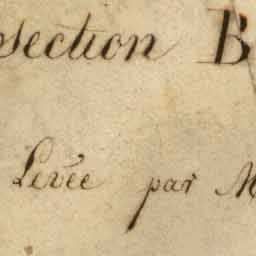 section B
Levée par M